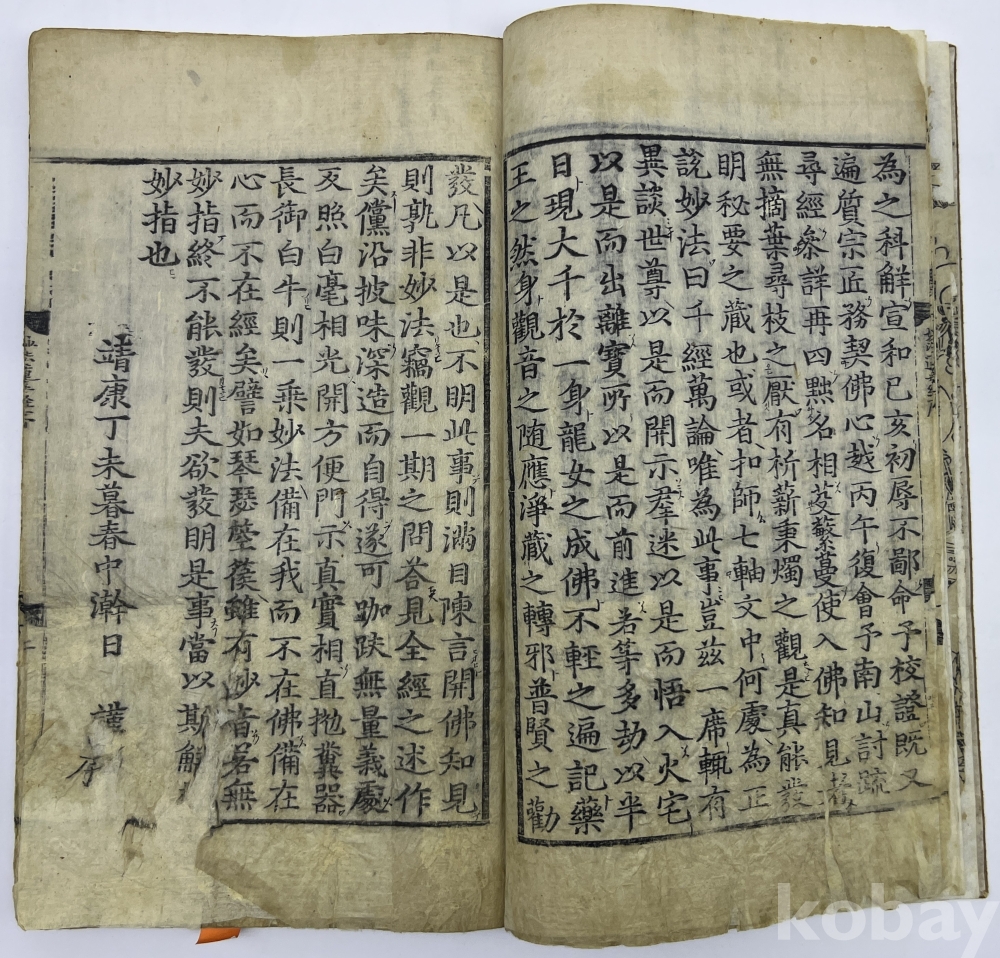 為之科解宣和己亥初辱不鄙命予校證既又
遍質宗匠務契佛心越丙午復會予南山討疏
尋經叅詳再四㸃名相芟蘩蔓使入佛知見者
無摘葉尋枝之厭有析薪秉燭之觀是真能發
明秘要之藏也或者扣師七軸文中何處為正
說妙法曰千經萬論唯為此事豈兹一席輒有
異談世尊以是而開示羣迷以是而悟入火宅
以是而出離寶所以是而前進若等多劫以半
日現大千於一身龍女之成佛不輕之遍記藥
王之然身觀音之随應淨蔵之轉邪普賢之勸
發凡以是也不明此事則滿目陳言開佛知見
則孰非妙法竊觀一期之問荅見全經之述作
矣儻沿披味深造而自得遂可跏趺無量義處
反照白毫相光開方便門示真實相直拋糞器
長御白牛則一乗妙法備在我而不在佛備在
心而不在經矣譬如琴瑟箜篌雖有妙音若無
妙指終不能發則夫欲發明是事當以斯解為
妙指也
靖康丁未暮春中澣日 謹序
kobay